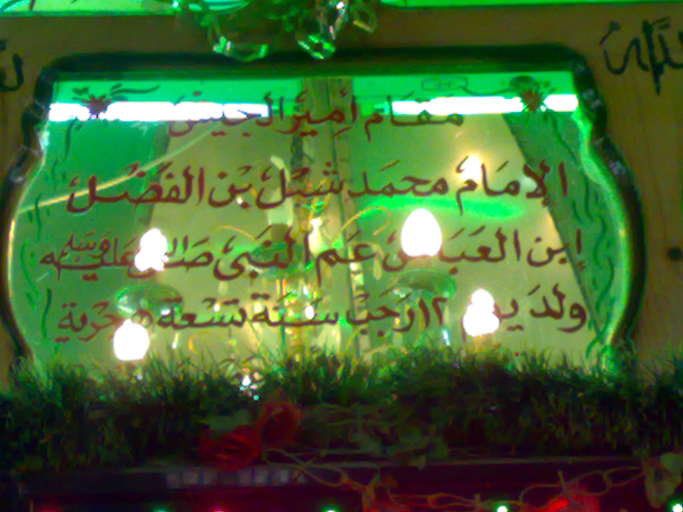 مقام أمير الجيش
الإمام محمد شبل بن الفضل
إبن العباس عم النبى صلى الله عليه وسلم
ولد يوم ١٢ رجب سنة تسعة هجرية